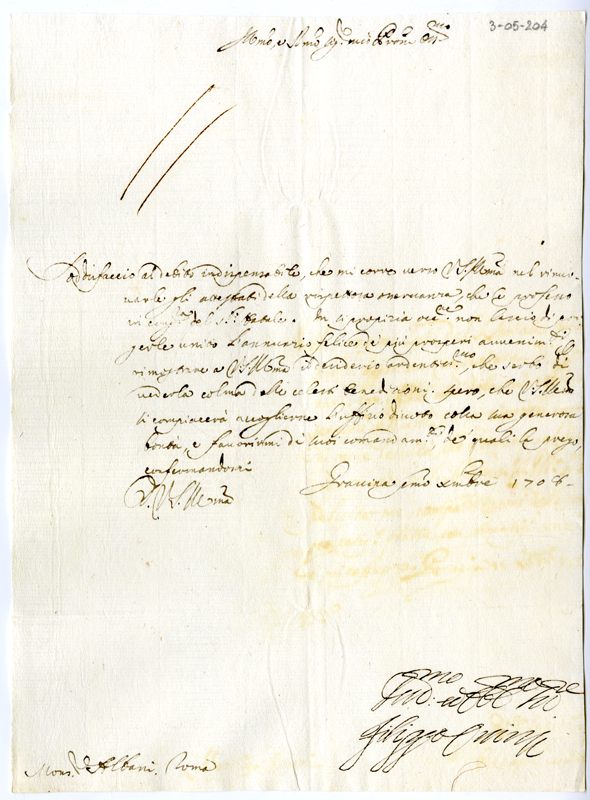 3-05-204
Illmo, e Rmo Sig.r mio Pron Col.mo
Soddisfaccio al debito indispensabile, che mi corre verso V.S. Illma nel rinuo-
uarle gli attestati della rispettosa osseruanza, che le professo
del S. Natale. In si propizia occ.e non lascio di por-
gerle unito l'annuario felice di più prosperi auuenim.ti
rimostrare a V.S. Illma il desiderio ardentiss.mo, che serbo di
uederla colma delle celesti benedizzioni. Spero, che V.S. Illma
si compiacerà accoglierne l'uffizio diuoto colla sua generosa
bontà, e fauorirmi de suoi comandam.ti, de quali la prego,
confermandomi
D. V.S. Illma
Grauina Xmbre 1708-
Filippo
Mons.r Albani. Roma